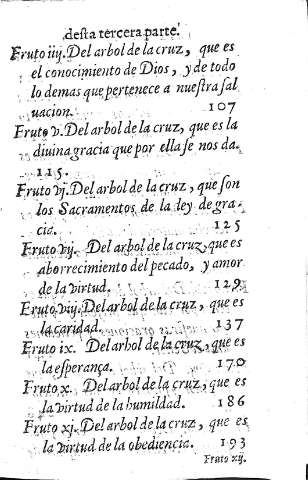 desta tercera parte.
Fruto iiij. Del arbol de la cruz, que es
el conocimiento de Dios, y de todo
lo demas que pertenece a nuestra sal
uacion. 107
Fruto v. Del arbol de la cruz, que es la
diuina gracia que por ella se nos da.
115.
Fruto vj. Del arbol de la cruz, que son
los Sacramentos de la ley de gra-
cia. 125
Fruto vij. Del arbol de la cruz, que es
aborrecimiento del pecado, y amor
de la virtud. 129
Fruto viij. Del arbol de la cruz, que es
la caridad. 137
Fruto ix. Del arbol de la cruz, que es
la esperança. 170
Fruto x. Del arbol de la cruz, que es
la virtud de la humildad. 186
Fruto xj. Del arbol de la cruz, que es
la virtud de la obediencia. 193
Fruto xij.